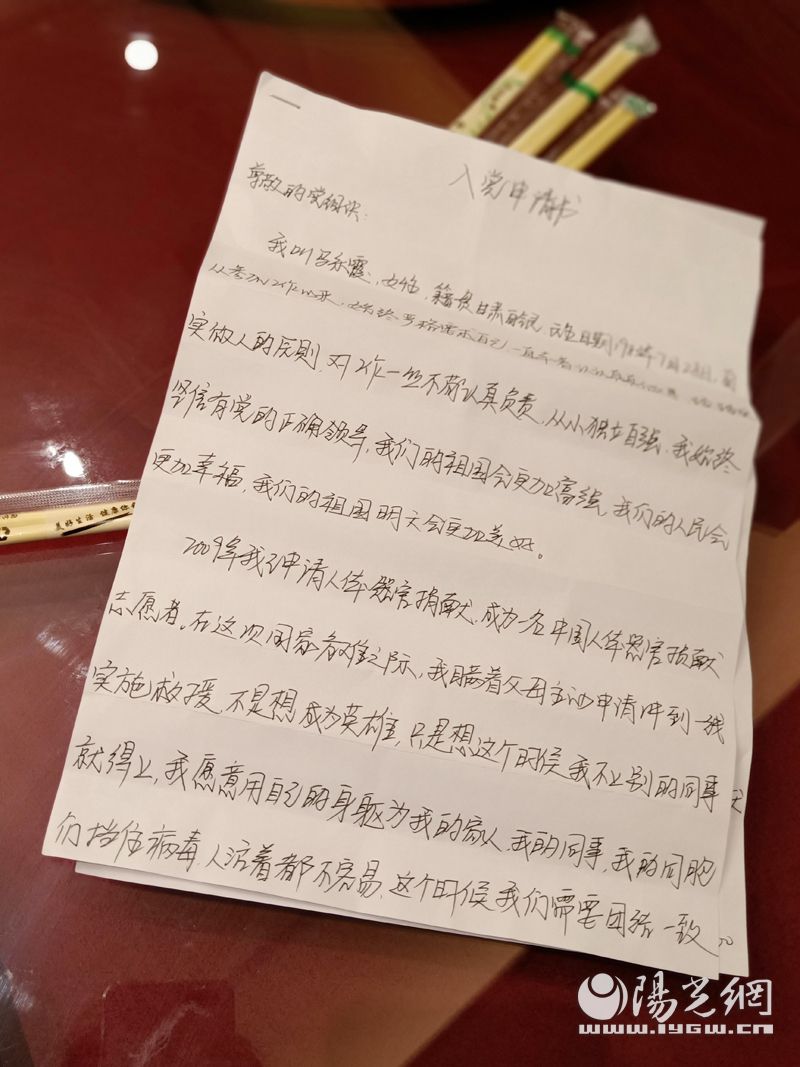 入党申请书
尊敬的党组织:
我叫马永霞,女,籍贯甘肃
从参加工作以来,始终严格要求自己,一直本着认认真真
实做人的原则,对工作一丝不苟认真负责,从小独立自强,我始终
坚信有党的正确领导,我们的祖国会更加富强,我们的人民会
更加幸福,我们的祖国明天会更加美好。
2009年我申请人体器官捐献,成为一名中国人体器官捐献
志愿者。在这次国家危难之际,我瞒着父母主动申请冲到一线
实施救援,不是想成为英雄,只是想这个时候我不上别的同事
就得上,我愿意用自己的身躯为我的家人,我的同事,我的同胞
们挡住病毒,人活着都不容易,这个时候我们需要团结一致。
美好生活 健康
陽光網
www.iygw.cn